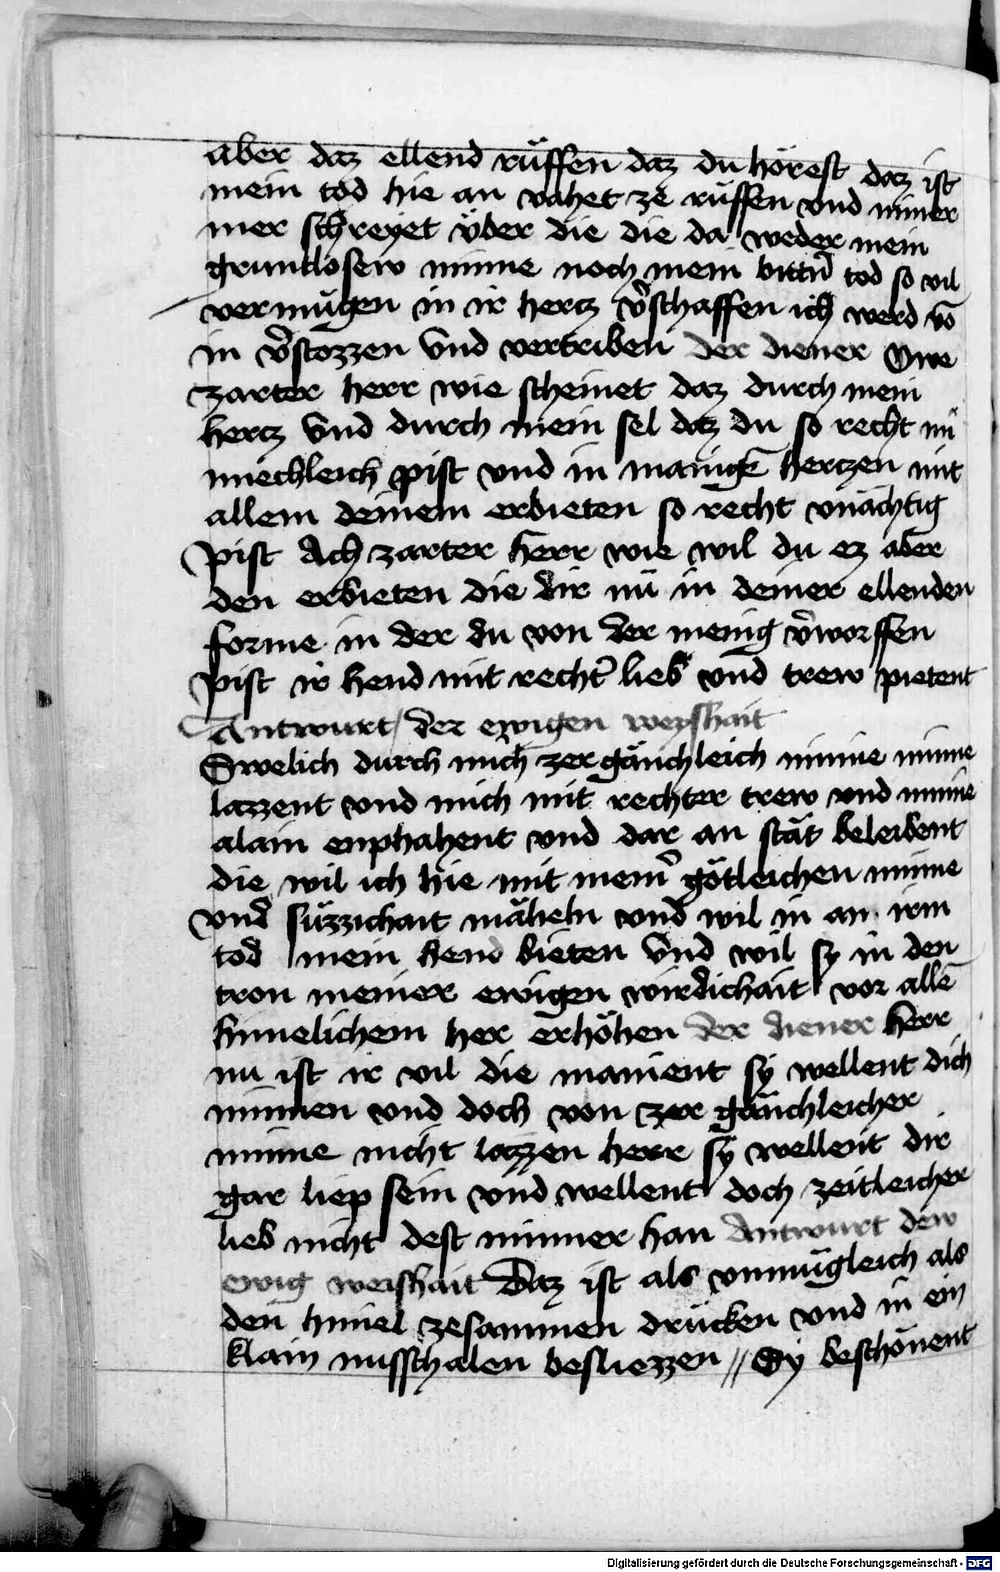 aber daz ellend rüffen daz du hörest daz ist
mein tod hie an vahet ze rüffen vnd nimer
mer schreyet über die die da weder mein
gruntlosew minne noch mein bittṙ tod so vil
vermügen in ir hertz v̄schaffen ich werd vō
in v̄stozzen Vnd vertriben der diener Owe
zarter herr wie scheinet daz durch mein
hertz Vnd durch mein sel daz du so recht mī
miechleich pist vnd in manigē hertzen mit
allem deinem erbieten so recht vnächtig
pist Ach zarter herr wie wil du ez aber
den erbieten die dir nu in deiner ellenden
forme in der du von der menig v̄worffen
pist ir hend mit recht̄ lieb vnd trew pietent
Antwurt der ewigen weyshait
Swelich durch mich zergänchleich minne minne
lazzent vnd mich mit rechter trew vnd minne
alain enphahent vnd dar an stät beleibent
die wil ich hie mit mein̄ götleichen minne
vnd süzzichait mäheln vnd wil in an irm
tod mein hend bieten Vnd wil sy in den
tron meiner ewigen wirdichait vor allē
himelichem her erhöhen der diener herr
nu ist ir vil die mainent sy wellent dich
minnen vnd doch von zergänchleicher
minne nicht lazzen herr sy wellent dir
gar liep sein vnd wellent doch zeitleicher
lieb nicht dest minner han Antwurt dew
ewig weishait Daz ist als vnmügleich als
den himel zesammen drücken vnd in ein
klain nusschalen besliezzen // Sy beschönent
Digitalisierung gefördert durch die Deutsche Forschungsgemeinschaft - DFG